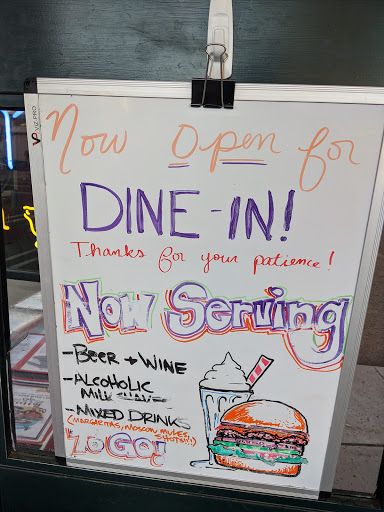 VIZ-PRO
Now Open for
DINE-IN!
Thanks for your patience!
Now Serving
- BEER + WINE
- ALCOHOLIC
MILKSHAKE
- MIXED DRINKS
(MARGARITAS, MOSCOW MULES
SHOTS!!!)
2 GO!